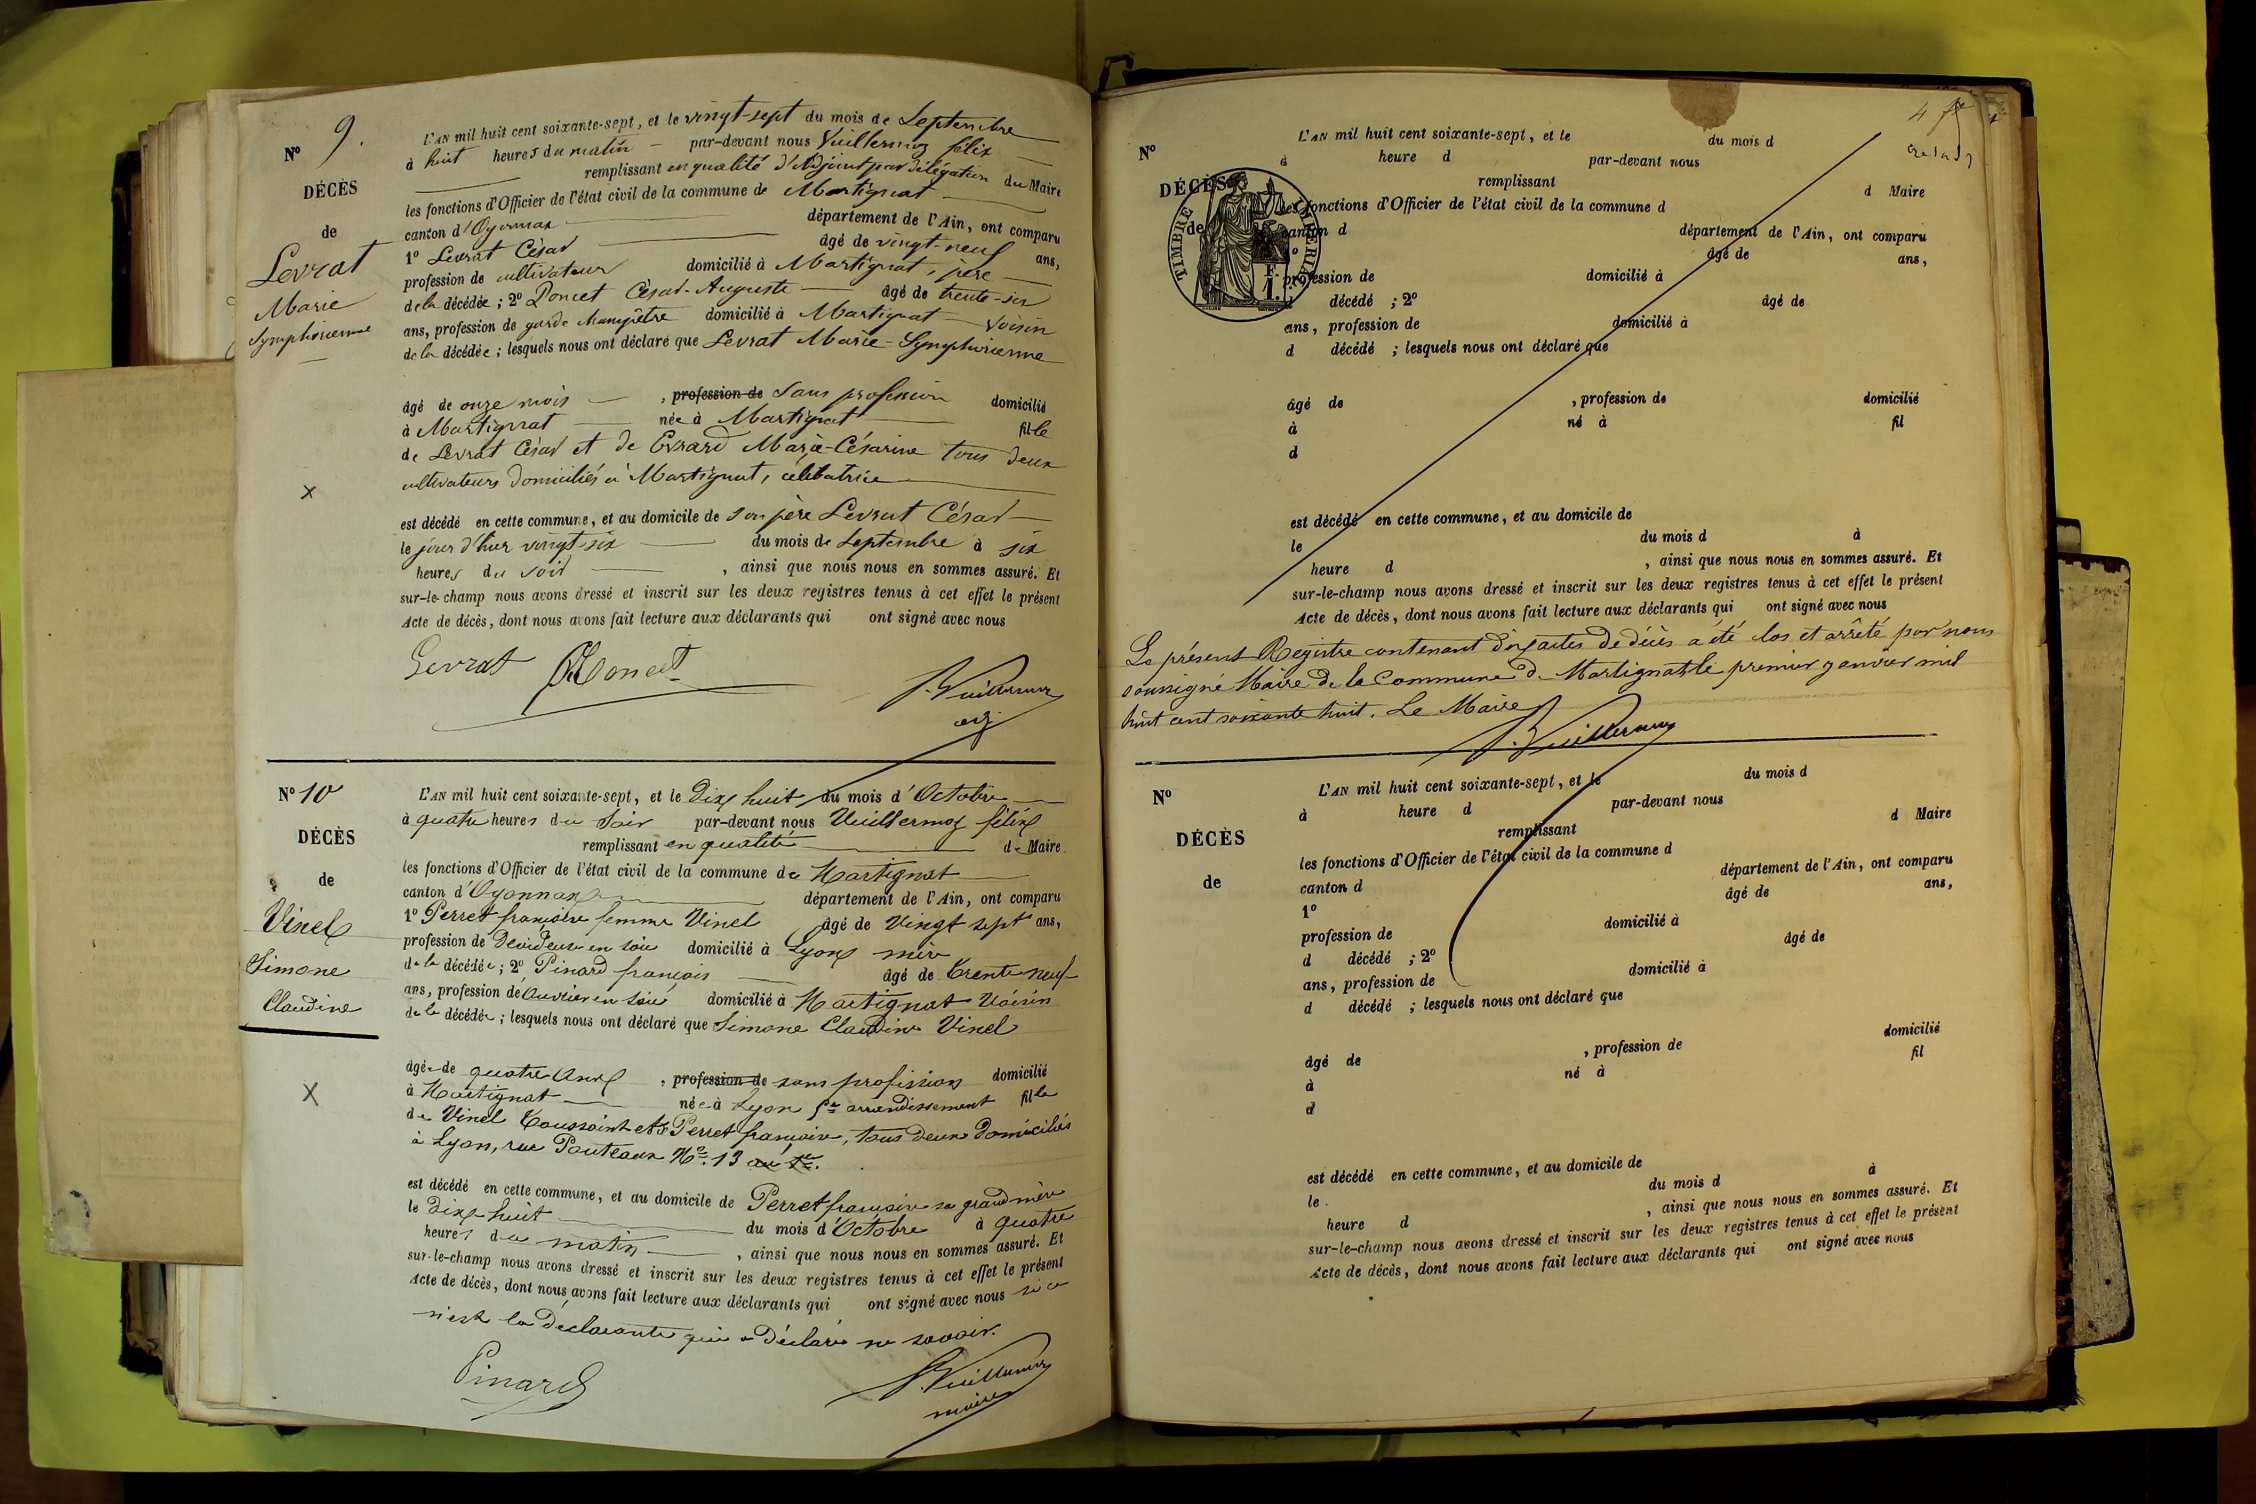 Nº 9.
DÉCÈS
de
Levrat
Marie
Symphorienne
L'AN mil huit cent soixante-sept, et le vingt-sept du mois de Septembre
à huit heures du matin par-devant nous Vuillermoz félix
remplissant en qualité d'Adjoint par délégation du Maire
les fonctions d'Officier de l'état civil de la commune de Martignat
canton d'Oyonnax département de l'Ain, ont comparu
1º Levrat César âgé de vingt-neuf ans,
profession de cultivateur domicilié à Martignat, père
de la décédée ; 2º Doncet César-Auguste âgé de trente-six
ans, profession de garde champêtre domicilié à Martignat voisin
de la décédée ; lesquels nous ont déclaré que Levrat Marie-Symphorienne
âgé de onze mois , profession de sans profession domicilié
à Martignat née à Martignat fille
de Levrat César et de Evrard Marie-Césarine tous deux
cultivateurs domiciliés à Martignat, célibatrice
est décédé en cette commune, et au domicile de son père Levrat César
le jour d'hier vingt-six du mois de Septembre à six
heures du soir , ainsi que nous nous en sommes assuré. Et
sur-le-champ nous avons dressé et inscrit sur les deux registres tenus à cet effet le présent
Acte de décès, dont nous avons fait lecture aux déclarants qui ont signé avec nous
Levrat Doncet f. Vuillermoz
adj.
Nº 10
DÉCÈS
de
Vinel
Simone
Claudine
L'AN mil huit cent soixante-sept, et le Dix huit du mois d'Octobre
à quatre heures du Soir par-devant nous Vuillermoz félix
remplissant en qualité de Maire
les fonctions d'Officier de l'état civil de la commune de Martignat
canton d'Oyonnax département de l'Ain, ont comparu
1º Perret françoise femme Vinel âgé de Vingt sept ans,
profession de Dévideuse en soie domicilié à Lyon mère
de la décédée ; 2º Pinard françois âgé de trente neuf
ans, profession de Ouvrier en soie domicilié à Martignat Voisin
de la décédée ; lesquels nous ont déclaré que Simone Claudine Vinel
âgée de quatre Ans , profession de sans profession domicilié
à Martignat née à Lyon arrondissement fille
de Vinel Toussaint et de Perret françoise, tous deux domiciliés
à Lyon, rue Pouteaux Nº. 13 au
est décédé en cette commune, et au domicile de Perret françoise sa grand mère
le Dix huit du mois d'Octobre à quatre
heures du matin , ainsi que nous nous en sommes assuré. Et
sur-le-champ nous avons dressé et inscrit sur les deux registres tenus à cet effet le présent
Acte de décès, dont nous avons fait lecture aux déclarants qui ont signé avec nous si ce
n'est la Déclarante qui a Déclaré ne savoir.
Pinard f. Vuillermoz
maire
Nº
DÉCÈS
de
TIMBRE IMPÉRIAL
L'AN mil huit cent soixante-sept, et le du mois d
à heure d par-devant nous
remplissant d Maire
les fonctions d'Officier de l'état civil de la commune d
canton d département de l'Ain, ont comparu
1º âgé de ans,
profession de domicilié à
d décédé ; 2º âgé de
ans, profession de domicilié à
d décédé ; lesquels nous ont déclaré que
âgé de , profession de domicilié
à né à fil
d
est décédé en cette commune, et au domicile de
le du mois d à
heure d , ainsi que nous nous en sommes assuré. Et
sur-le-champ nous avons dressé et inscrit sur les deux registres tenus à cet effet le présent
Acte de décès, dont nous avons fait lecture aux déclarants qui ont signé avec nous
Le présent Registre contenant dix actes de décès a été clos et arrêté par nous
soussigné Maire de la Commune de Martignat le premier janvier mil
huit cent soixante huit. Le Maire
f. Vuillermoz
Nº
DÉCÈS
de
L'AN mil huit cent soixante-sept, et le du mois d
à heure d par-devant nous
remplissant d Maire
les fonctions d'Officier de l'état civil de la commune d
canton d département de l'Ain, ont comparu
1º âgé de ans,
profession de domicilié à
d décédé ; 2º âgé de
ans, profession de domicilié à
d décédé ; lesquels nous ont déclaré que
âgé de , profession de domicilié
à né à fil
d
est décédé en cette commune, et au domicile de
le du mois d à
heure d , ainsi que nous nous en sommes assuré. Et
sur-le-champ nous avons dressé et inscrit sur les deux registres tenus à cet effet le présent
Acte de décès, dont nous avons fait lecture aux déclarants qui ont signé avec nous